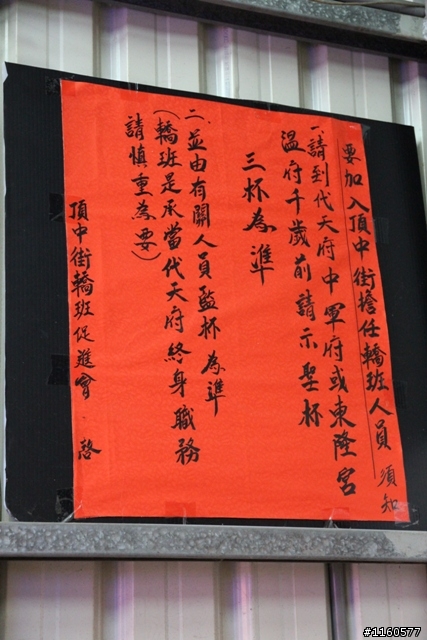 要加入頂中街擔任轎班人員須知
一.請到代天府中軍府或東隆宮
溫府千歲前請示聖杯
三杯為準
二.並由有關人員監杯為準
(轎班是承當代天府終身職務
請慎重為要)
頂中街轎班促進會 啓
#1160577